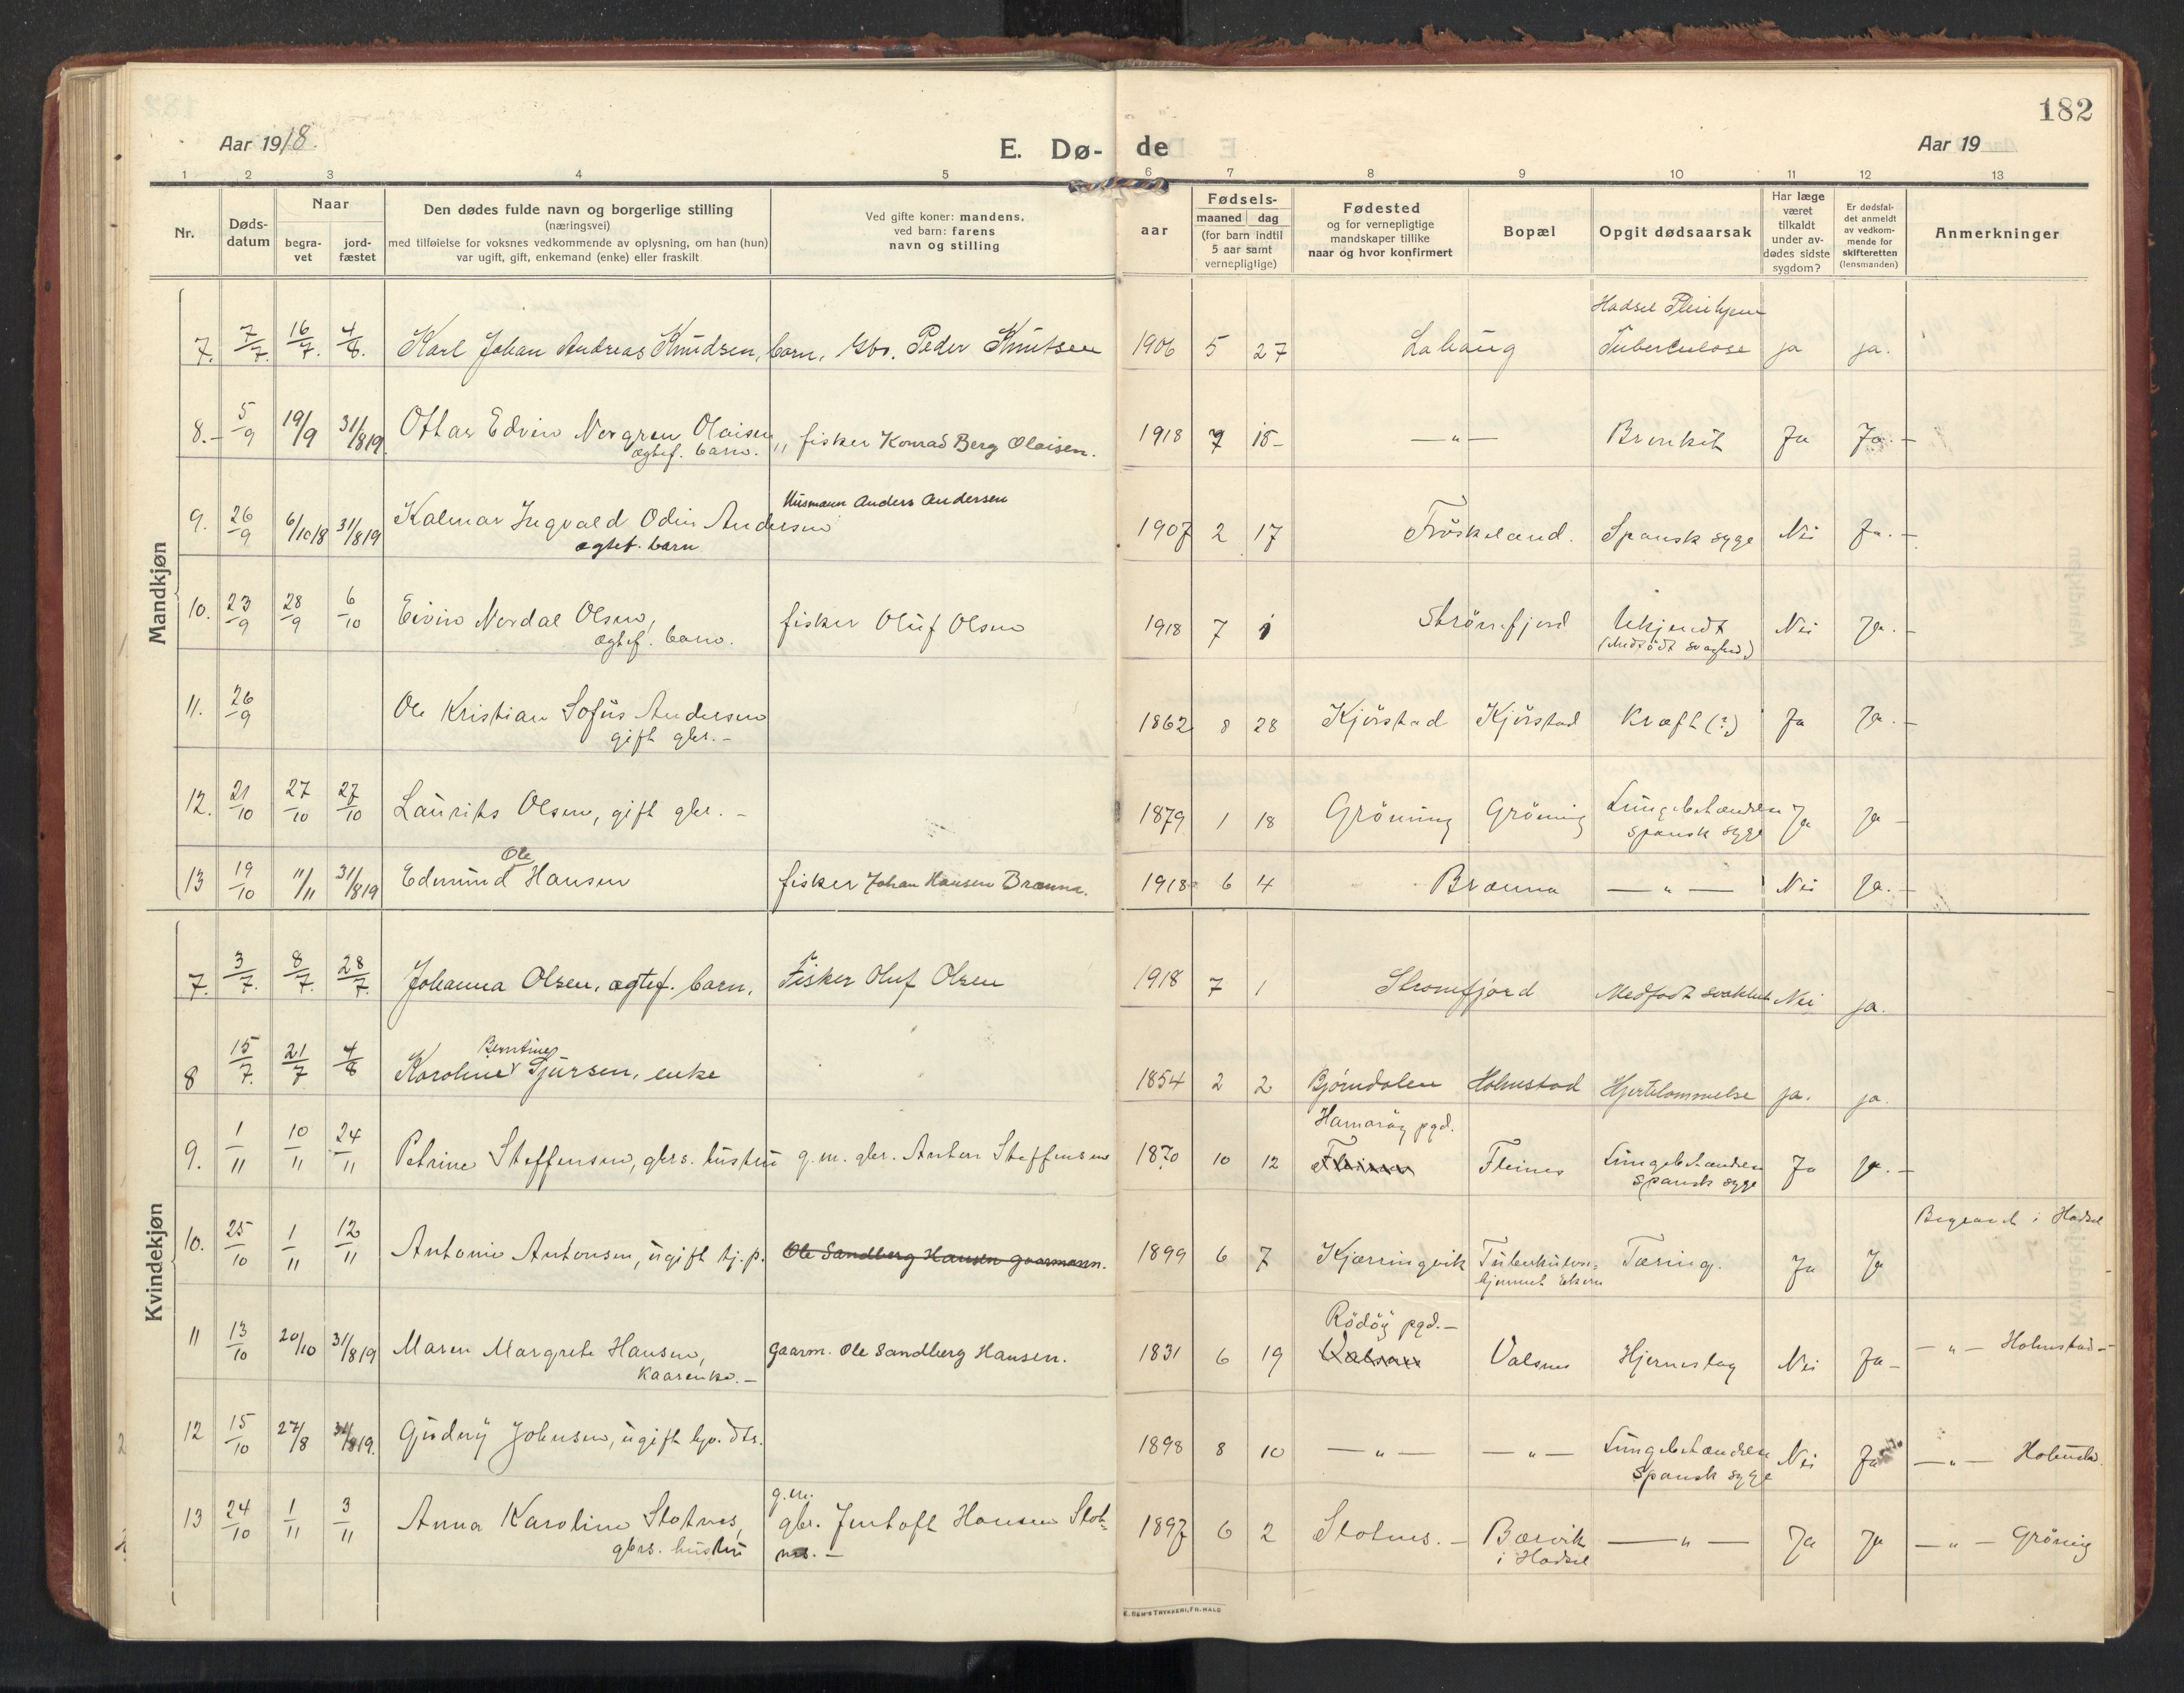 182
Aar 1918.
E. Dø- de
Aar 19
1 2 3 4 5 6 7 8 9 10 11 12 13
Nr.
Døds-
datum
Naar
begra-
vet
jord-
fæstet
Den dødes fulde navn og borgerlige stilling
(næringsvei)
med tilføielse for voksnes vedkommende av oplysning, om han (hun)
var ugift, gift, enkemand (enke) eller fraskilt
Ved gifte koner: mandens,
ved barn: farens
navn og stilling
aar
Fødsels-
maaned dag
(for barn indtil
5 aar samt
vernepligtige)
Fødested
og for vernepligtige
mandskaper tillike
naar og hvor konfirmert
Bopæl
Opgit dødsaarsak
Har læge
været
tilkaldt
under av-
dødes sidste
sygdom?
Er dødsfal-
det anmeldt
av vedkom-
mende for
skifteretten
(lensmanden)
Anmerkninger
Mandkjøn
Hadsel Pleiehjem
7. 7/7. 16/7. 4/8. Karl Johan Andreas Knudsen, barn, gbr. Peder Knutsen 1906 5 27 Lahaug Tuberkulose ja ja.
8.- 5/9 19/9 31/819. Ottar Edvin Norgren Olaisen, fisker Konrad Berg Olaisen. 1918 7 18- —„— Bronkit Ja Ja.-
ægtef. barn. „
Husmann Anders Andersen
9. 26/9 6/1018 31/819 Kalmar Ingvald Odin Andersen 1907 2 17 Fröskeland. Spansk syge Nei Ja.-
ægtef. barn
10. 23/9 28/9 6/10 Eivin Nordal Olsen, fisker Oluf Olsen 1918 7 1 Strömfjord Ukjendt Nei Ja.-
ægtef. barn. (Medfödt svaghed)
11. 26/9 Ole Kristian Sofus Andersen 1862 8 28 Kjörstad Kjörstad Kræft (?) Ja Ja.-
gift gbr.-
12. 21/10 27/10 27/10 Laurits Olsen, gift gbr.- 1879 1 18 Gröning Gröning Lungebetændelse Ja Ja-
spansk syge
Ole
13 19/10 11/11 31/819 Edmund Hansen fisker Johan Hansen Brænna. 1918 6 4 Brænna —„— Nei Ja.-
Kvindekjøn
7. 3/7. 8/7. 28/7. Johanna Olsen, ægtef. barn, Fisker Oluf Olsen 1918 7 1 Stromfjord Medfødt svakhet Nei ja.
Berntine
8 15/7. 21/7 4/8 Karoline Sjursen, enke 1854 2 2 Bjørndalen Holmstad Hjertelammelse ja. ja.
Hamarøy pgd.
9. 1/11 10/11 24/11 Petrine Steffensen, gbrs. hustru g.m. gbr. Anton Steffensen 1870 10 12 Fleines Fleines Lungebetændelse Ja Ja.-
spansk syge
Begravet i Hadsel
10. 25/10 1/11 12/11 Antonie Antonsen, ugift tj.p. Ole Sandberg Hansen gaarmann. 1899 6 7 Kjærringvik Tuberkulose= Tæring. Ja Ja
hjemmet
Rödöy pgd.-
11 13/10 20/10 31/819 Maren Margrete Hansen, gaarm. Ole Sandberg Hansen. 1831 6 19 Valsnes Valsnes Hjerneslag Nei Ja- —„— Holmstad-
Kaarenke.-
12 15/10 27/8 31/819. Gudny Johnsen, ugift dtr. 1898 8 10 —„— —„— Lungebetændelse Nei Ja —„— Holmstad.
Spansk syge
g.m.
13 24/10 1/11 3/11 Anna Karoline Slotnes, gbr. Jentoft Hansen Slot= 1897 6 2 Slotnes.- Bærvik —„— Ja Ja —„— Gröning
gbrs. hustru nes.- i Hadsel
E. SEM'S TRYKKERI, FR.HALD